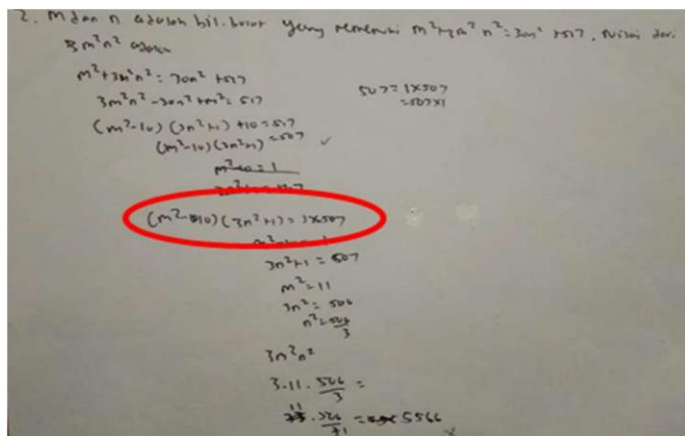 2. M dan n adalah bil. bulat yang memenuhi m²+3m²n²=30n²+517. Nilai dari
3m²n² adalah
m²+3m²n²=30n²+517
3m²n²-30n²+m²=517
507=1x507
=507x1
(m²-10)(3n²+1)+10=517
(m²-10)(3n²+1)=507
m²-10=1
(m²-10)(3n²+1)=1x507
3n²+1=507
m²=11
3n²=506
n²=506/3
3m²n²
3.11.506/3=
=5566